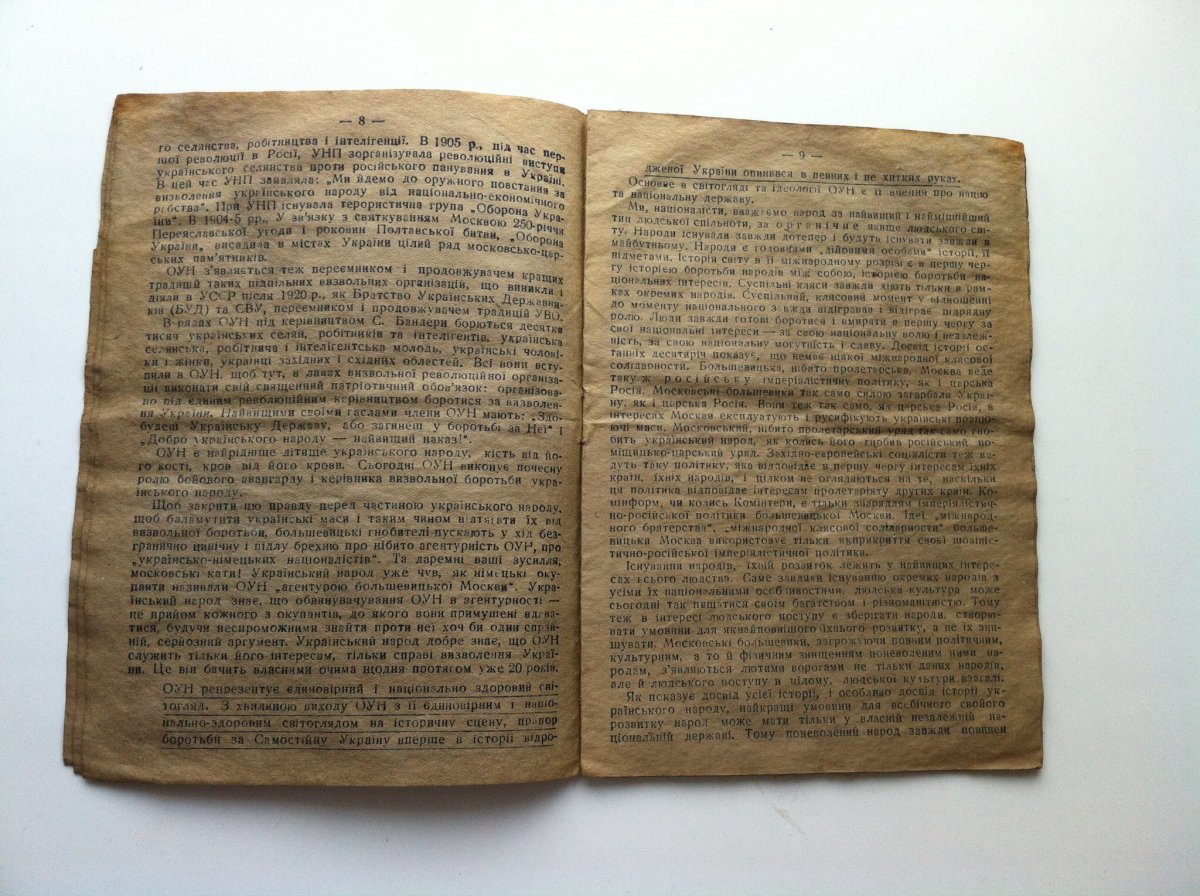 — 8 —
го селянства, робітництва і інтелігенції. В 1905 р., під час пер-
шої революції в Росії, УНП зорганізувала революційні виступи
українського селянства проти російського панування в Україні.
В цей час УНП заявляла: „Ми йдемо до оружного повстання за
визволення українського народу від національно-економічного
рабства“. При УНП існувала терористична група „Оборона Укра-
їни“. В 1904-5 рр., У зв'язку з святкуванням Москвою 250-річчя
Переяславської угоди і роковин Полтавської битви, „Оборона
України„ висадила в містах України цілий ряд московсько-цар-
ських пам'ятників.
ОУН з'являється теж переємником і продовжувачем кращих
традицій таких підпільних визвольних організацій, що виникли і
діяли в УССР після 1920 р., як Братство Українських Державни-
ків (БУД) та СВУ, переємником і продовжувачем традицій УВО.
В рядах ОУН під керівництвом С. Бандери борються десятки
тисяч українських селян, робітників та інтелігентів, українська
селянська, робітнича і інтелігентська молодь, українські чолові-
ки і жінки, українці західних і східних областей. Всі вони всту-
пили в ОУН, щоб тут, в лавах визвольної революційної організа-
ції виконати свій священний патріотичний обов'язок: організова-
но під єдиним революційним керівництвом боротися за визволе-
ння України. Найвищими своїми гаслами члени ОУН мають: „Здо-
будеш Українську Державу, або загинеш у боротьбі за Неї“ і
„Добро українського народу — найвищий наказ!“.
ОУН є найрідніше дітище українського народу, кість від йо-
го кості, кров від його крови. Сьогодні ОУН виконує почесну
ролю бойового авангарду і керівника визвольної боротьби укра-
їнського народу.
Щоб закрити цю правду перед частиною українського народу,
щоб баламутити українські маси і таким чином відтягати їх від
визвольної боротьби, большевицькі гнобителі пускають у хід без-
гранично цинічну і підлу брехню про нібито агентурність ОУН, про
„українсько-німецьких націоналістів“. Та даремні ваші зусилля,
московські кати! Український народ уже чув, як німецькі оку-
панти називали ОУН „агентурою большевицької Москви“. Укра-
їнський народ знає, що обвинувачування ОУН в агентурності —
це прийом кожного з окупантів, до якого вони примушені вдава-
тися, будучи неспроможними знайти проти неї хоч би один справ-
ній, серйозний аргумент. Український народ добре знає, що ОУН
служить тільки його інтересам, тільки справі визволення Украї-
ни. Це він бачить власними очима щодня протягом уже 20 років.
ОУН репрезентує єдиновірний і національно здоровий сві-
тогляд. З хвилиною виходу ОУН з її єдиновірним і націо-
нально-здоровим світоглядом на історичну сцену, прапор
боротьби за Самостійну Україну вперше в історії відро-
— 9 —
дженої України опинився в певних і не хитких руках.
Основне в світогляді та ідеології ОУН є її вчення про націю
та національну державу.
Ми, націоналісти, вважаємо народ за найвищий і найміцніший
тип людської спільноти, за органічне явище людського сві-
ту. Народи існували завжди дотепер і будуть існувати завжди в
майбутньому. Народи є головними „дійовими особами“ історії, її
підметами. Історія світу в її міжнародному розрізі є в першу чер-
гу історією боротьби народів між собою, історією боротьби на-
ціональних інтересів. Суспільні кляси завжди діють тільки в рам-
ках окремих народів. Суспільний, клясовий момент у відношенні
до моменту національного завжди відігравав і відіграє підрядну
ролю. Люди завжди готові боротися і вмирати в першу чергу за
свої національні інтереси — за свою національну волю і незалеж-
ність, за свою національну могутність і славу. Досвід історії ос-
танніх десятиріч показує, що немає ніякої міжнародної класової
солідарности. Большевицька, нібито пролетарська, Москва веде
таку ж російську імперіалістичну політику, як і царська
Росія. Московські большевики так само силою загарбали Украї-
ну, як і царська Росія. Вони теж так само, як царська Росія, в
інтересах Москви експлуатують і русифікують українські працю-
ючі маси. Московський, нібито пролетарський уряд так само гно-
бить український народ, як колись його гнобив російський по-
міщицько-царський уряд. Західно-европейські соціялісти теж ве-
дуть таку політику, яка відповідає в першу чергу інтересам їхніх
країн, їхніх народів, і цілком не оглядаються на те, наскільки
ця політика відповідає інтересам пролетаріяту других країн. Ко-
мінформ, чи колись Комінтерн, є тільки знаряддям імперіялістич-
но-російської політики большевицької Москви. Ідеї „міжнарод-
ного братерства“, „міжнародної клясової солідарности“ больше-
вицька Москва використовує тільки для прикриття своєї шовініс-
тично-російської імперіялістичної політики.
Існування народів, їхній розвиток лежить у найвищих інтере-
сах усього людства. Саме завдяки існуванню окремих народів з
усіми їх національними особливостями, людська культура може
сьогодні так пишатися своїм багатством і різноманітністю. Тому
теж в інтересі людського поступу є зберігати народи, створю-
вати умовини для якнайповнішого їхнього розвитку, а не їх зни-
щувати. Московські большевики, загрожуючи повним політичним,
культурним, а то й фізичним знищенням поневоленим ними на-
родам, з'являються лютими ворогами не тільки даних народів,
але й людського поступу в цілому, людської культури взагалі.
Як показує досвід усієї історії, і особливо досвід історії ук-
раїнського народу, найкращі умовини для всебічного свойого
розвитку народ може мати тільки у власній незалежній на-
ціональній державі. Тому поневолений народ завжди повинен